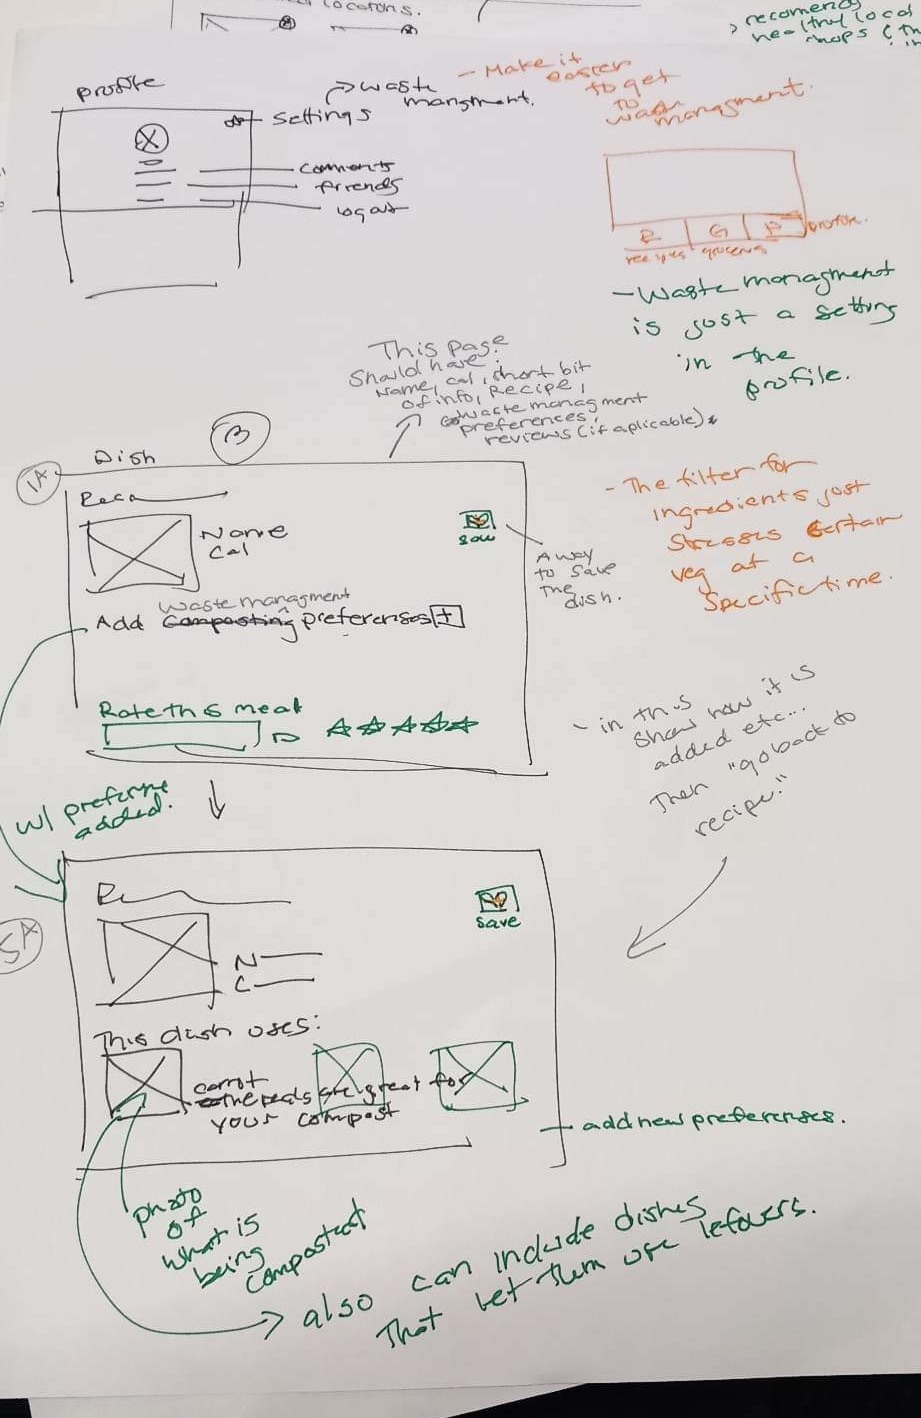 locations.
recomend
healthy local
shops (th
in
profile
settings
waste
managment.
comments
friends
logout
- Make it
easier
to get
to
waste
managment.
R G P profile.
recipes groceries
- Waste managment
is just a setting
in the
profile.
This page
Should have:
Name, cal, short bit
of info, Recipe,
waste managment
preferences,
reviews (if aplicable)
B
1A
Dish
Name
Cal
save
A way
to save
the
dish.
Waste managment
Add Composting preferenses +
Rate this meal
- The filter for
ingredients just
stresses certain
veg at a
specific time.
- in this
show how it is
added etc...
Then "go back to
recipe."
w/ preferense
added.
5A
save
N
C
This dish uses:
carrot
peels are great for
your compost
- add new preferenses.
photo
of
what is
being
composted
also can include dishes
that let them use leftovers.